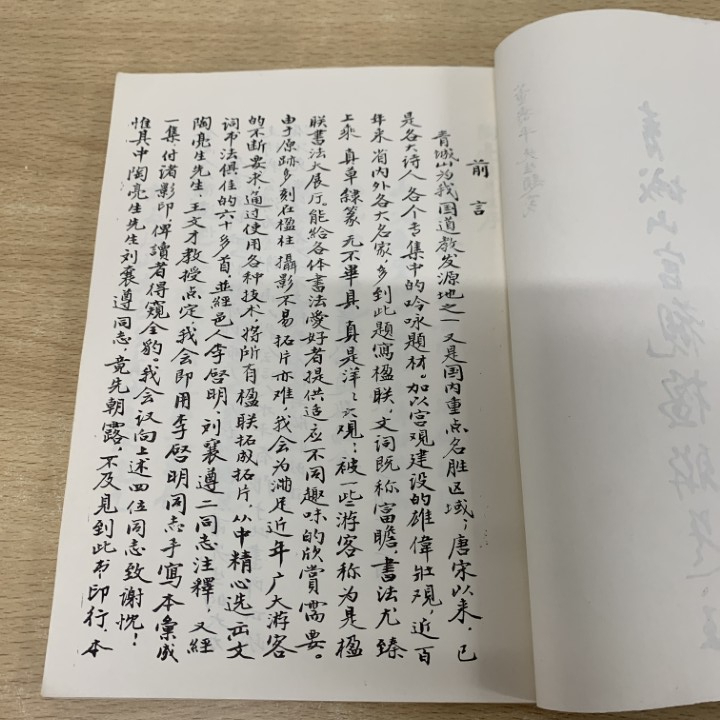 前言
青城山为我国道教发源地之一又是国内重点名胜区域；唐宋以来，已
是各大诗人各个专集中的吟咏题材。加以宫观建设的雄偉，壮观，近百
年来省内外各大名家，多到此题寫楹联，文词既称富瞻，書法尤臻
上乘真草隸篆无不畢具，真是洋洋大观；被一些游客称为是楹
联書法大展厅。能給各体書法愛好者提供适应不同趣味的欣賞需要。
由于原跡多刻在楹柱攝影不易拓片亦难，我会为满足近年广大游客
的不断要求，通过使用各种技术，将所有楹联拓成拓片，从中精心选出文
词书法俱佳的六十多首，並經邑人李啓明，刘襄遵二同志注釋，又經
陶亮生先生，王文才教授点定，我会即用李啓明同志手寫本彙成
一集付诸影印，俾讀者得窺全豹。我会谨向上述四位同志致谢忱！
惟其中陶亮生先生刘襄遵同志竟先朝露，不及見到此书印行，本